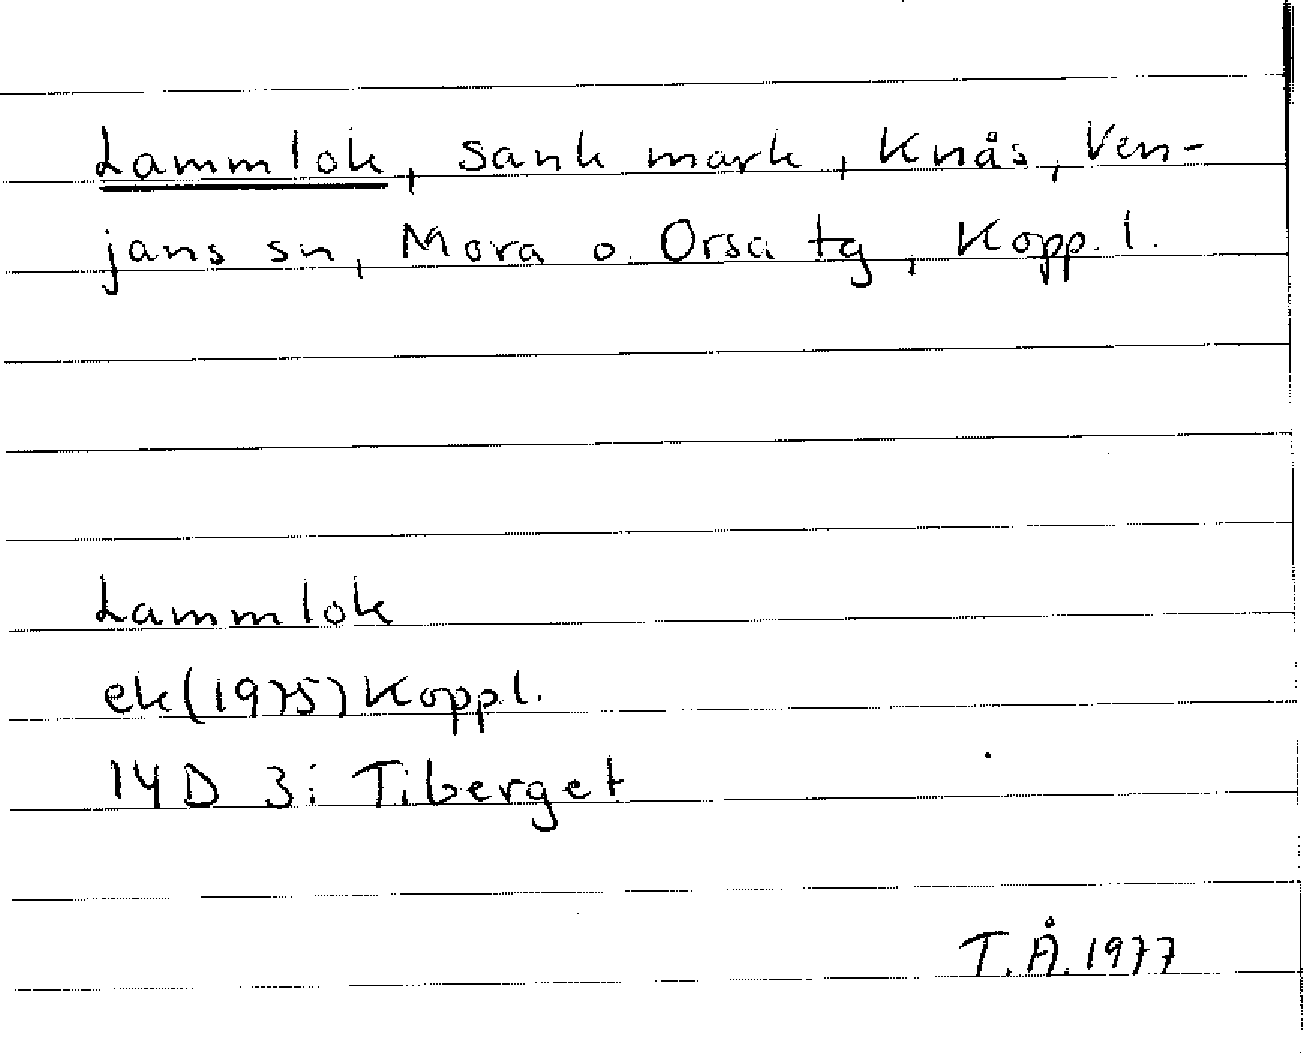 Lammlok, sank mark, Knås, Ven-
jans sn, Mora o. Orsa tg, Kopp. l.
Lammlok
ek(1975) Kopp l.
14 D 3i Tiberget
T.Å. 1977